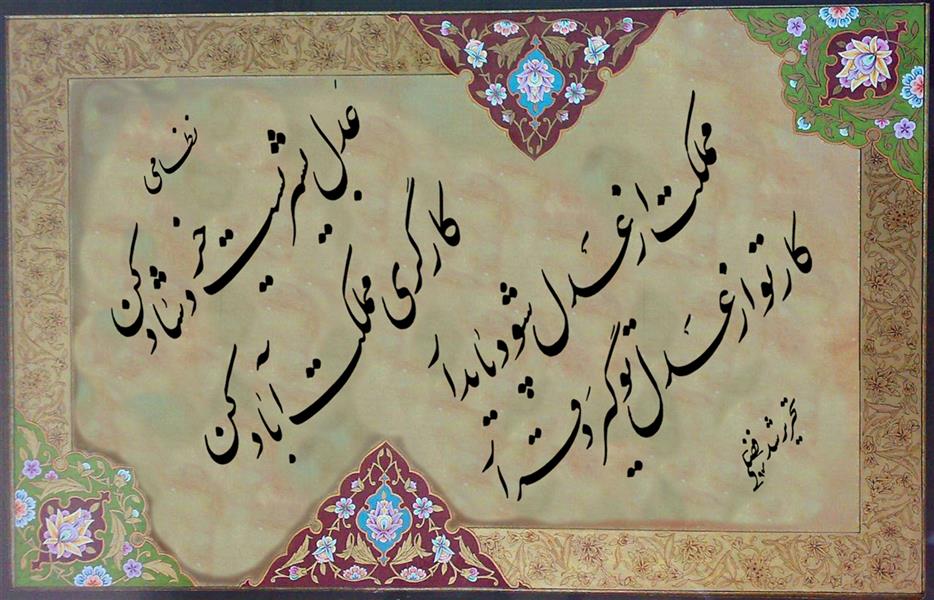 مملکت از عدل شود پایدار
کار تو از عدل تو گیرد قرار
عدل بشیریست خرد شاد کن
کارگری مملکت آباد کن
نظامی
تحریر شد